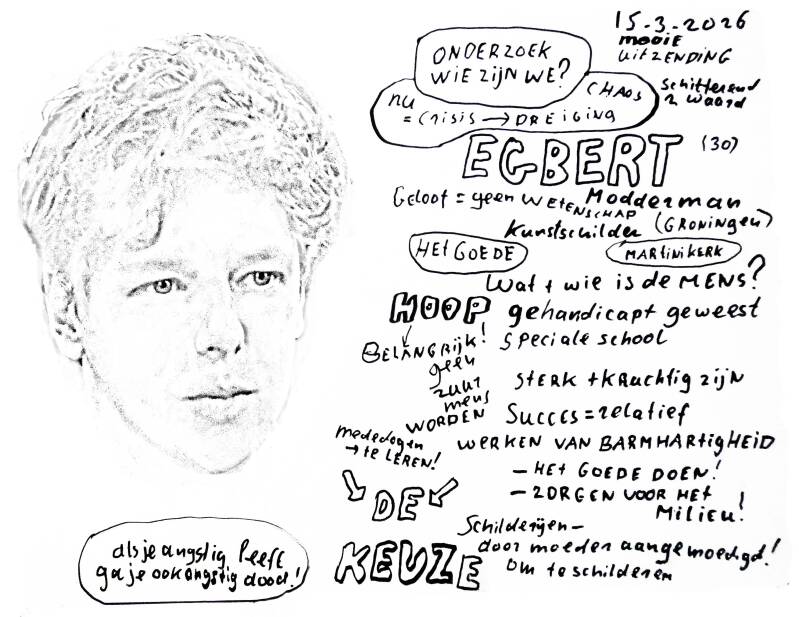 15-3-2026
mooie
UITZENDING
Schitterend
2 waard
ONDERZOEK
WIE ZIJN WE?
CHAOS
NU
= CRISIS → DREIGING
EGBERT (30)
Geloof = geen WETENSCHAP
Modderman
Kunstschilder (GRONINGEN)
HET GOEDE
MARTINIKERK
Wat + wie is de MENS?
HOOP gehandicapt geweest
BELANGRIJK! speciale school
geen
zuur
mens
WORDEN
STERK + KRachtig zijn
SUCCES = relatief
mededogen
→ te LEREN!
WERKEN VAN BARMHARTIGHEID
- HET GOEDE DOEN!
- ZORGEN VOOR HET
MILIEU!
DE
KEUZE
Schilderijen -
door moeder aangemoedigd!
om te schilderen
als je angstig leeft
ga je ook angstig dood!